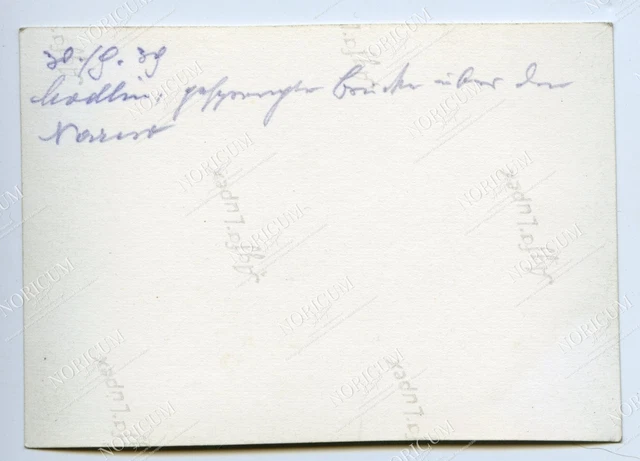 30./9. 39
Modlin, gesprengte Brücke über den
Narew
Agfa-Lupex
Agfa-Lupex
Agfa-Lupex
Agfa-Lupex
NORICUM
NORICUM
NORICUM
NORICUM
NORICUM
NORICUM
NORICUM
NORICUM
NORICUM
NORICUM
NORICUM
NORICUM
NORICUM